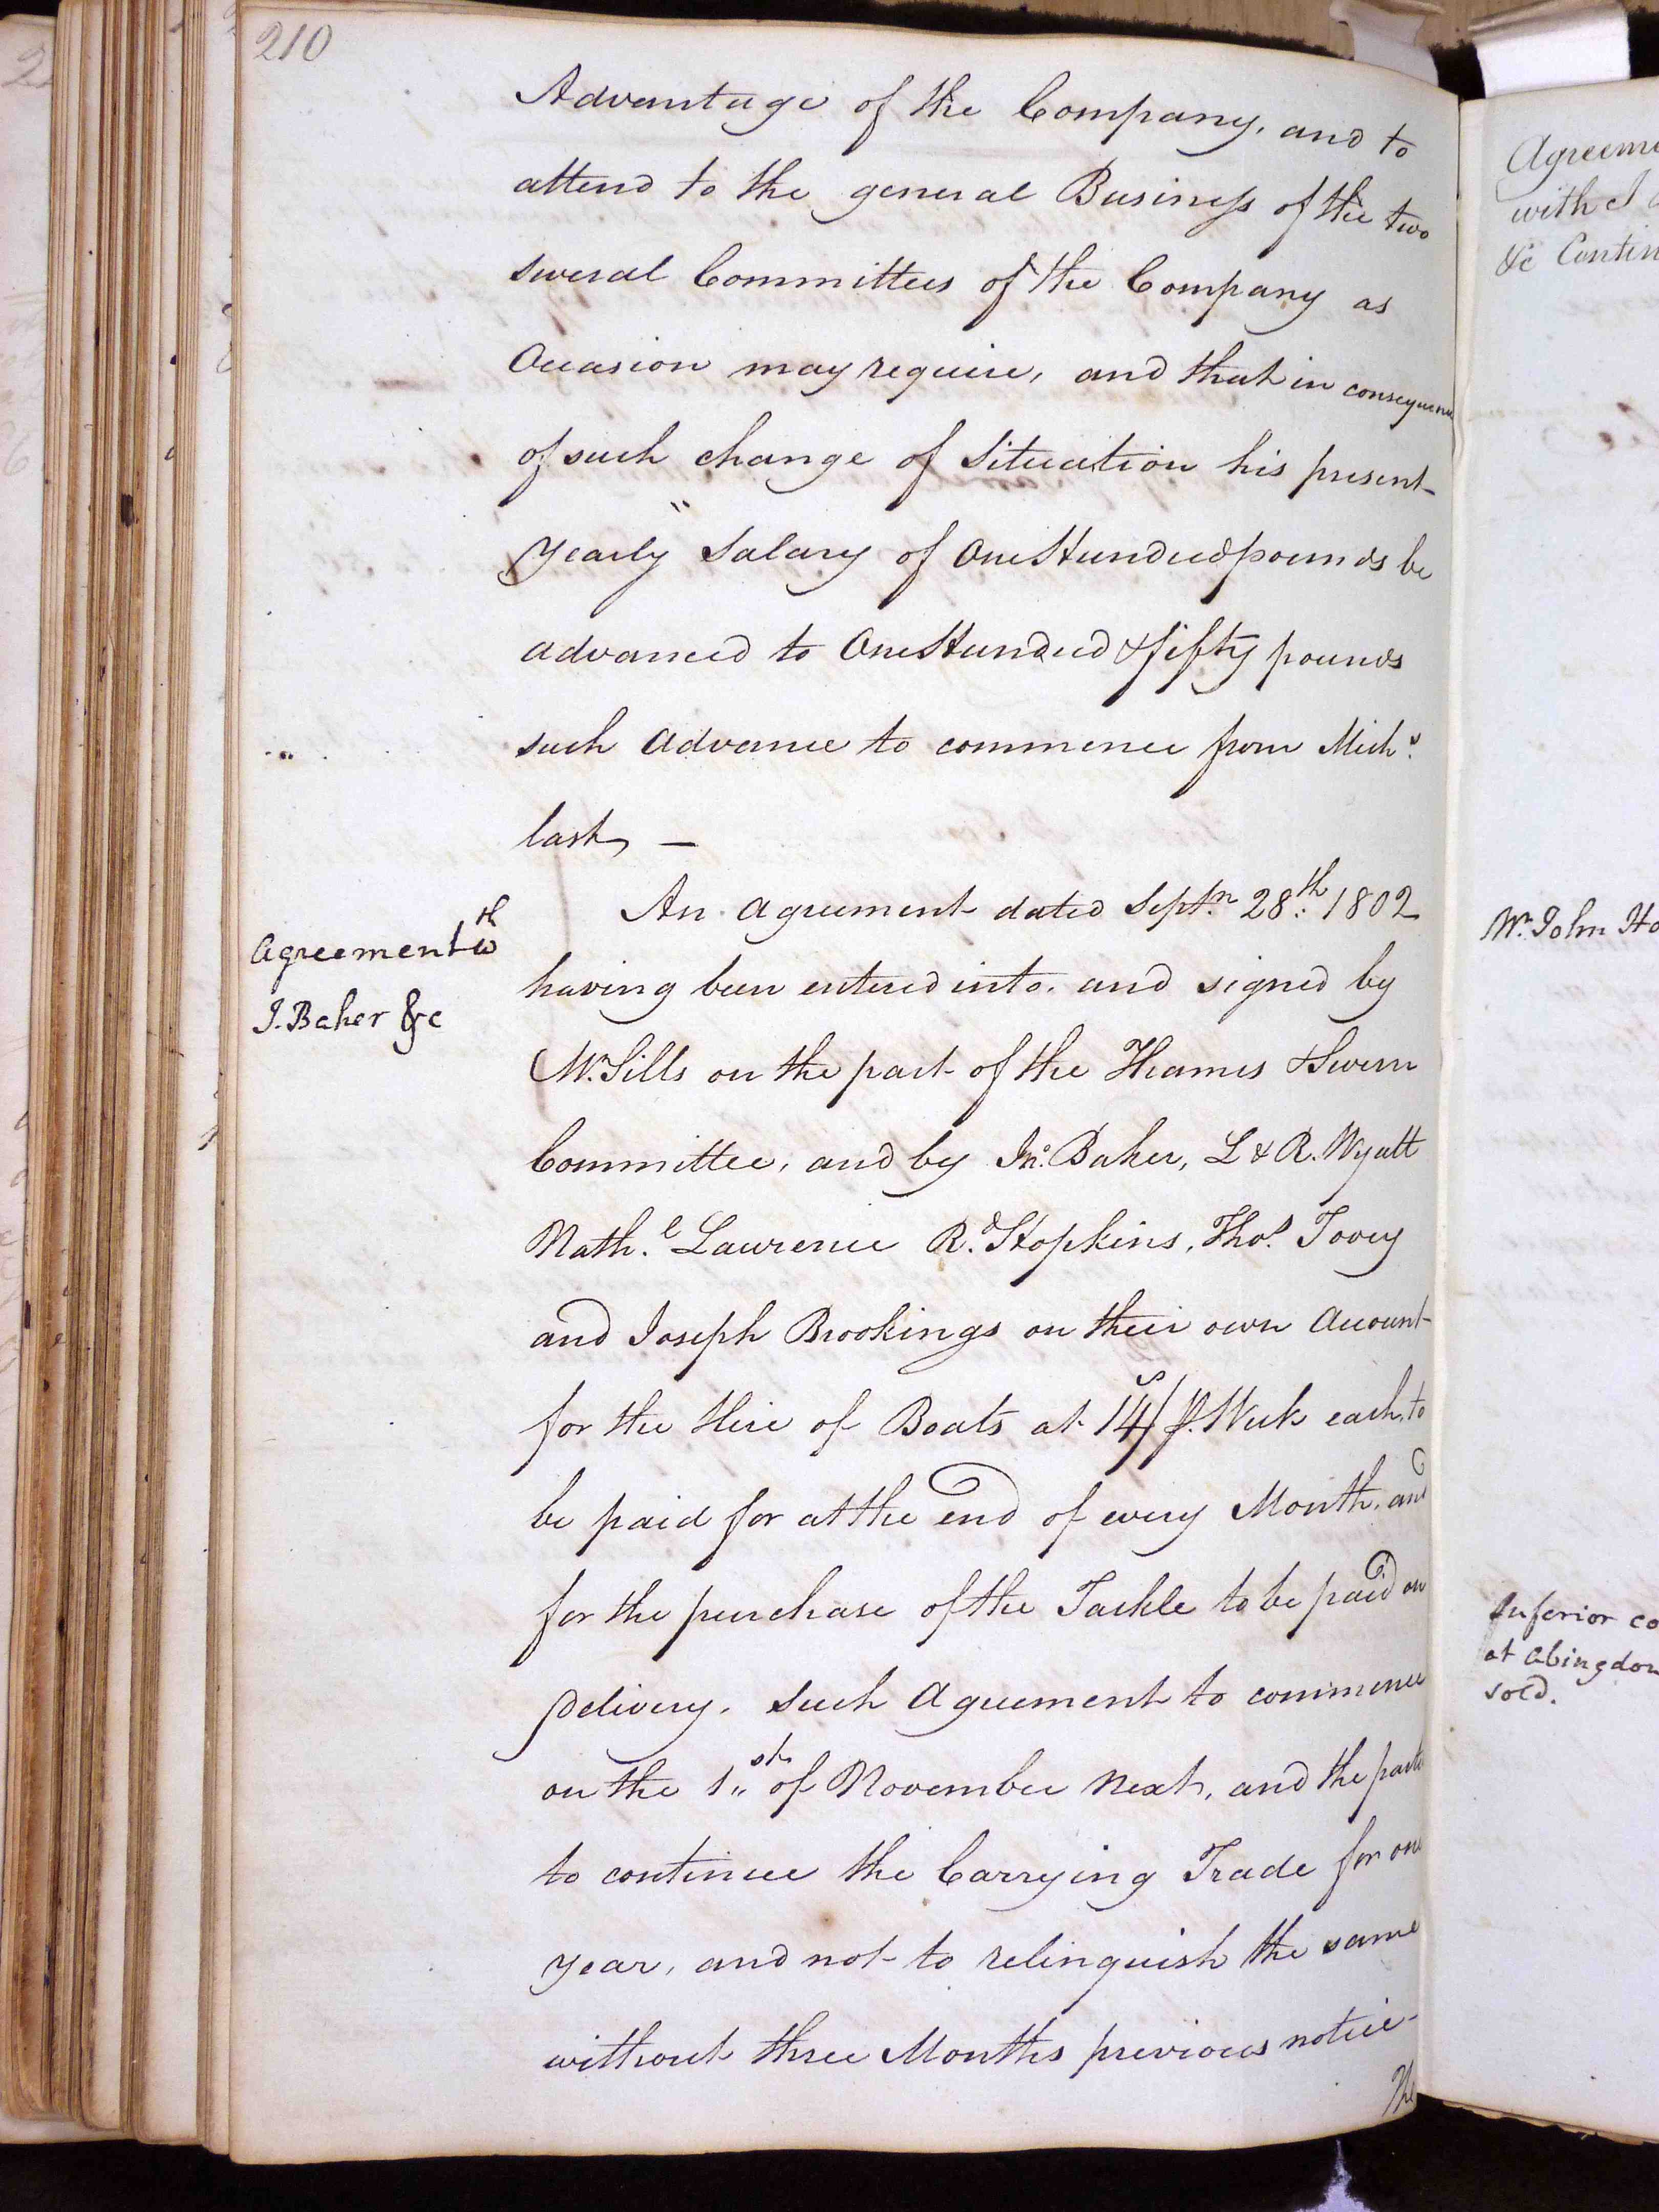 210
Advantage of the Company, and to
attend to the general Business of the two
several Committees of the Company as
Occasion may require, and that in consequence
of such change of Situation his present
Yearly Salary of One Hundred pounds be
advanced to One Hundred & fifty pounds
such Advance to commence from Michs.
last, —
Agreement wth
J. Baker &c
An Agreement dated Septr. 28th. 1802
having been entered into, and signed by
Mr. Sills on the part of the Thames & Severn
Committee, and by Jno. Baker, L & R. Wyatt
Nathl. Lawrence Rd. Hopkins, Thos. Tovey
and Joseph Brookings on their own Account
for the Hire of Boats at 14s/ p. Week each, to
be paid for at the end of every Month, and
for the purchase of the Tackle to be paid on
Delivery. such Agreement to commence
on the 1st of November next, and the parties
to continue the Carrying Trade for one
year, and not to relinquish the same
without three Months previous notice
The
Agreeme
with J
&c Contin
Mr. John Ho
Inferior co
at Abingdon
sold.